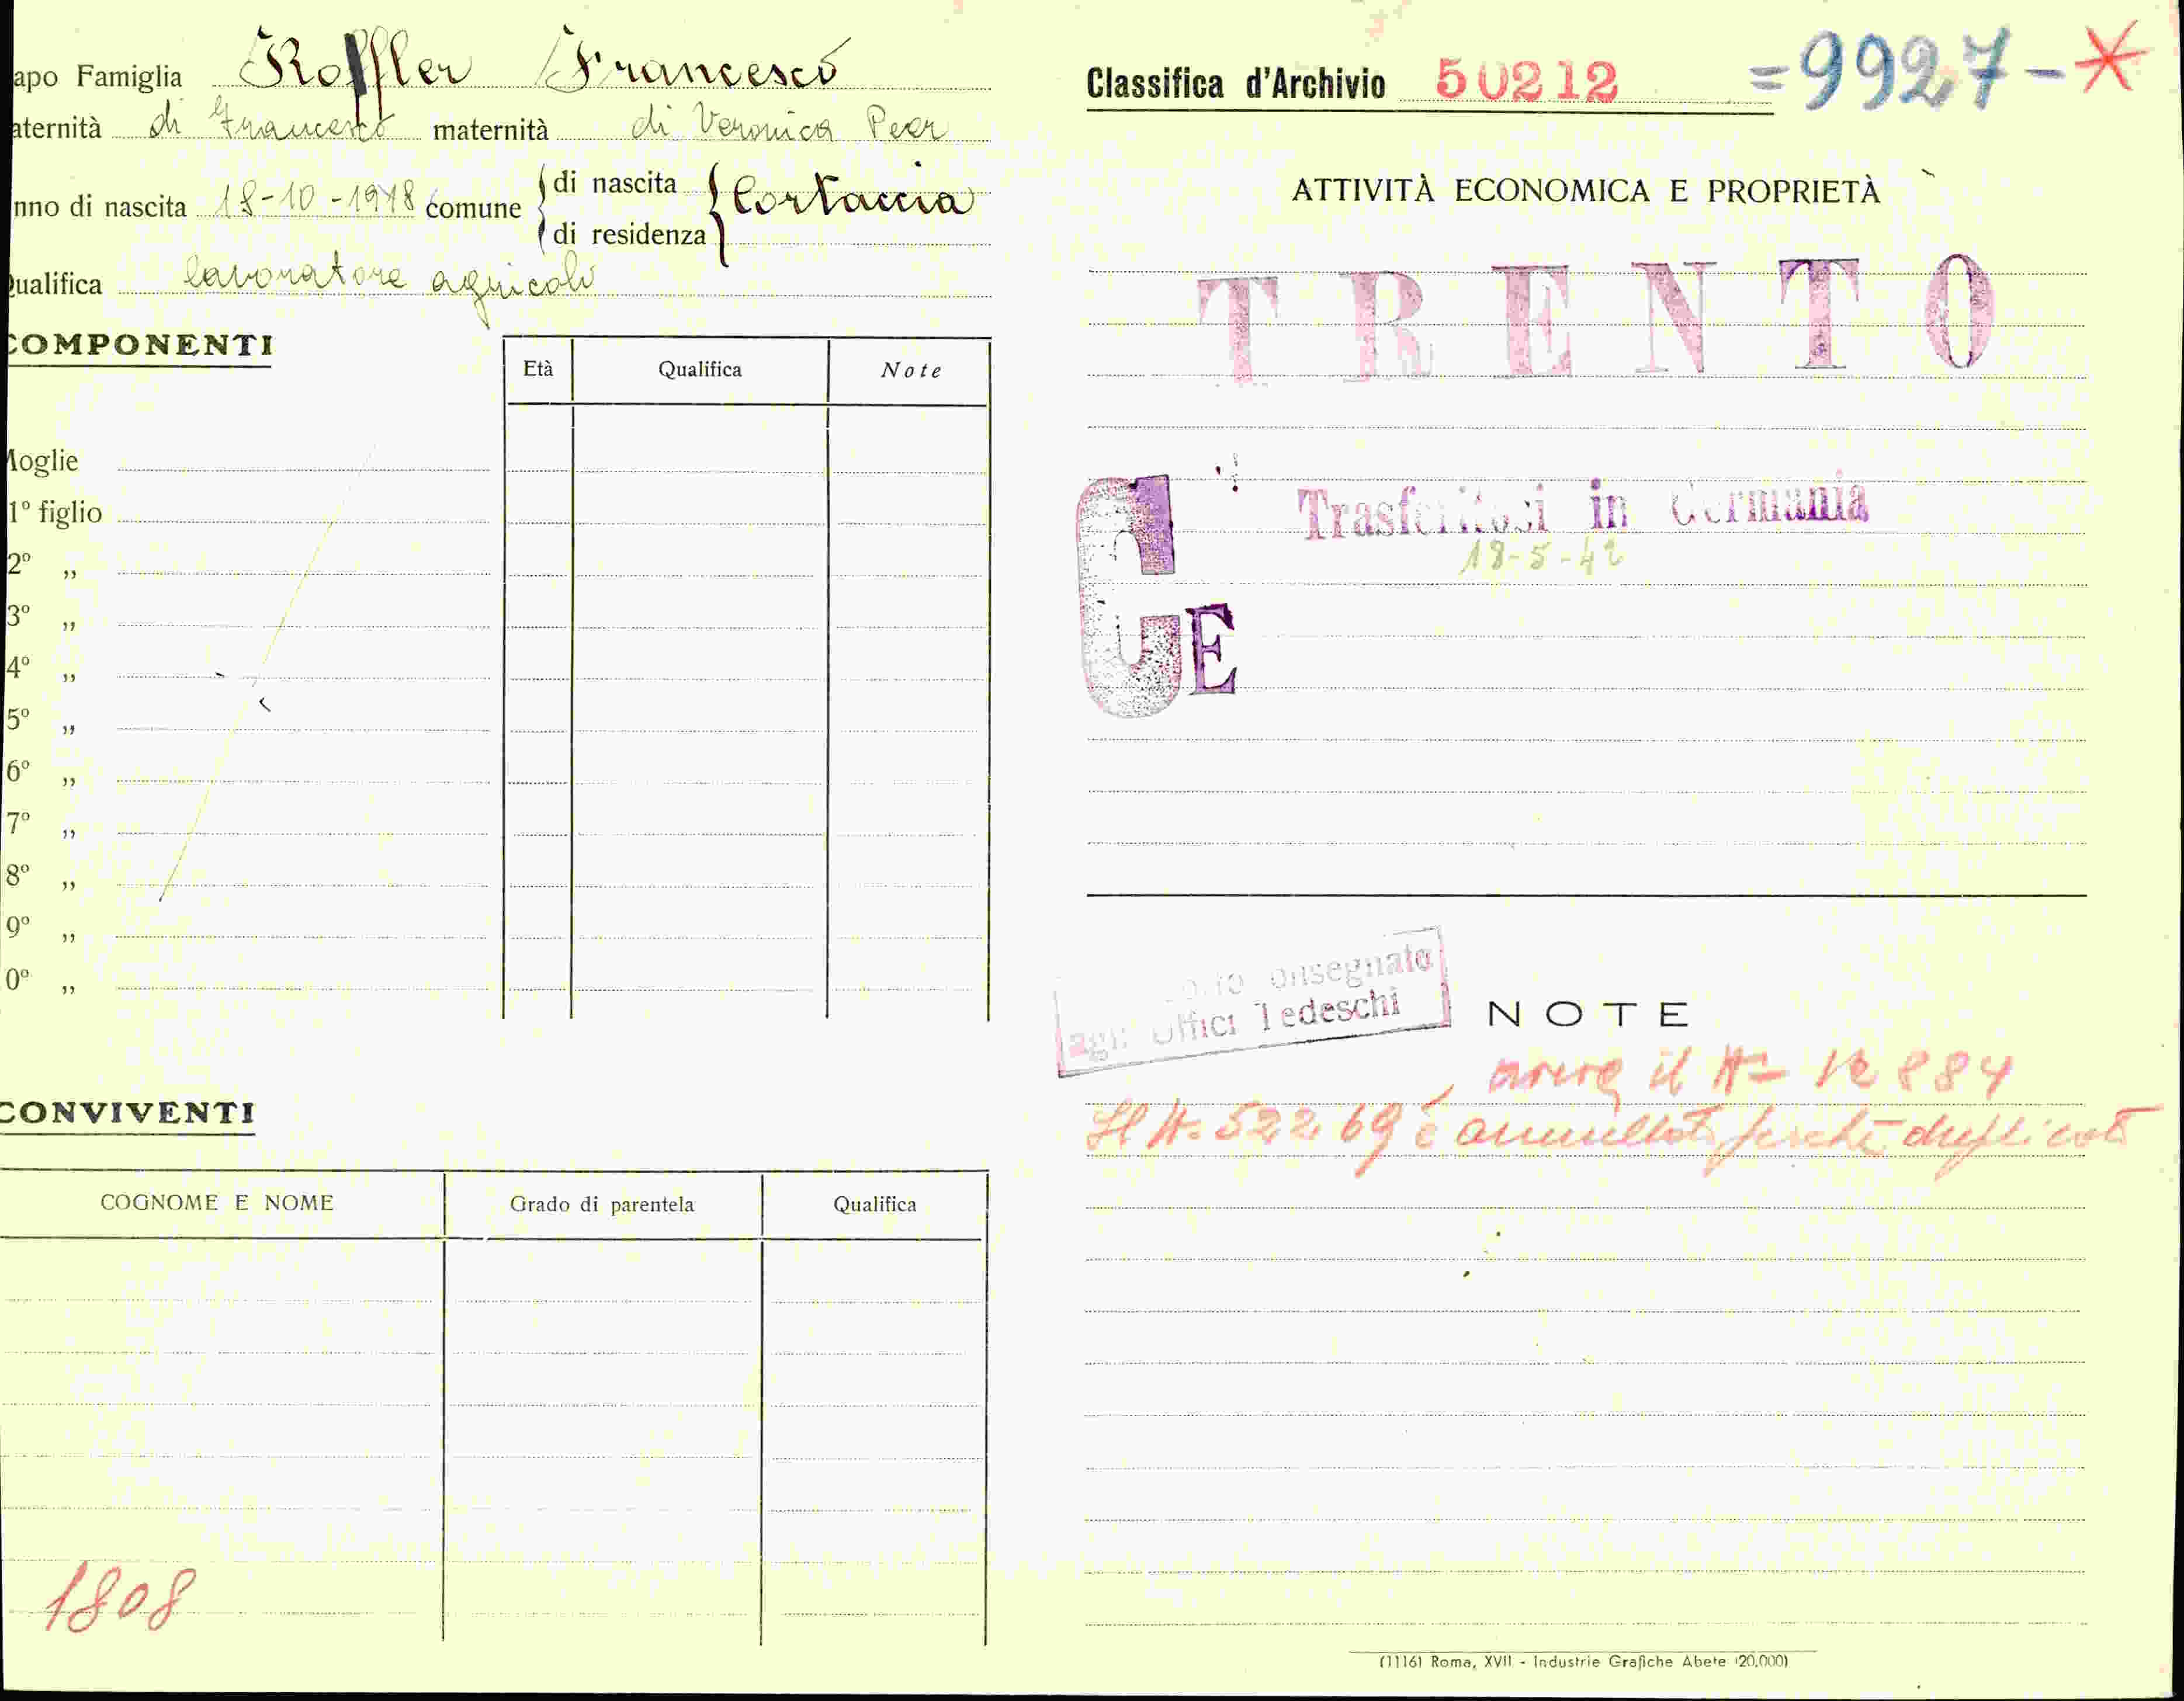 apo Famiglia Koffler Francesco
aternità di Francesco maternità di Veronica Peer
nno di nascita 18-10-1918 comune di nascita Cortaccia
di residenza
Qualifica lavoratore agricolo
COMPONENTI
Età Qualifica Note
Moglie
1º figlio
2º „
3º „
4º „
5º „
6º „
7º „
8º „
9º „
0º „
CONVIVENTI
COGNOME E NOME Grado di parentela Qualifica
1808
Classifica d'Archivio 50212 =9927-*
ATTIVITÀ ECONOMICA E PROPRIETÀ
TRENTO
Trasferitosi in Germania
18-5-42
G E
onsegnato
agli Uffici Tedeschi
NOTE
il N= 12884
Il N. 52269 è annullato perché duplicato
(11161 Roma, XVII - Industrie Grafiche Abete (20,000)